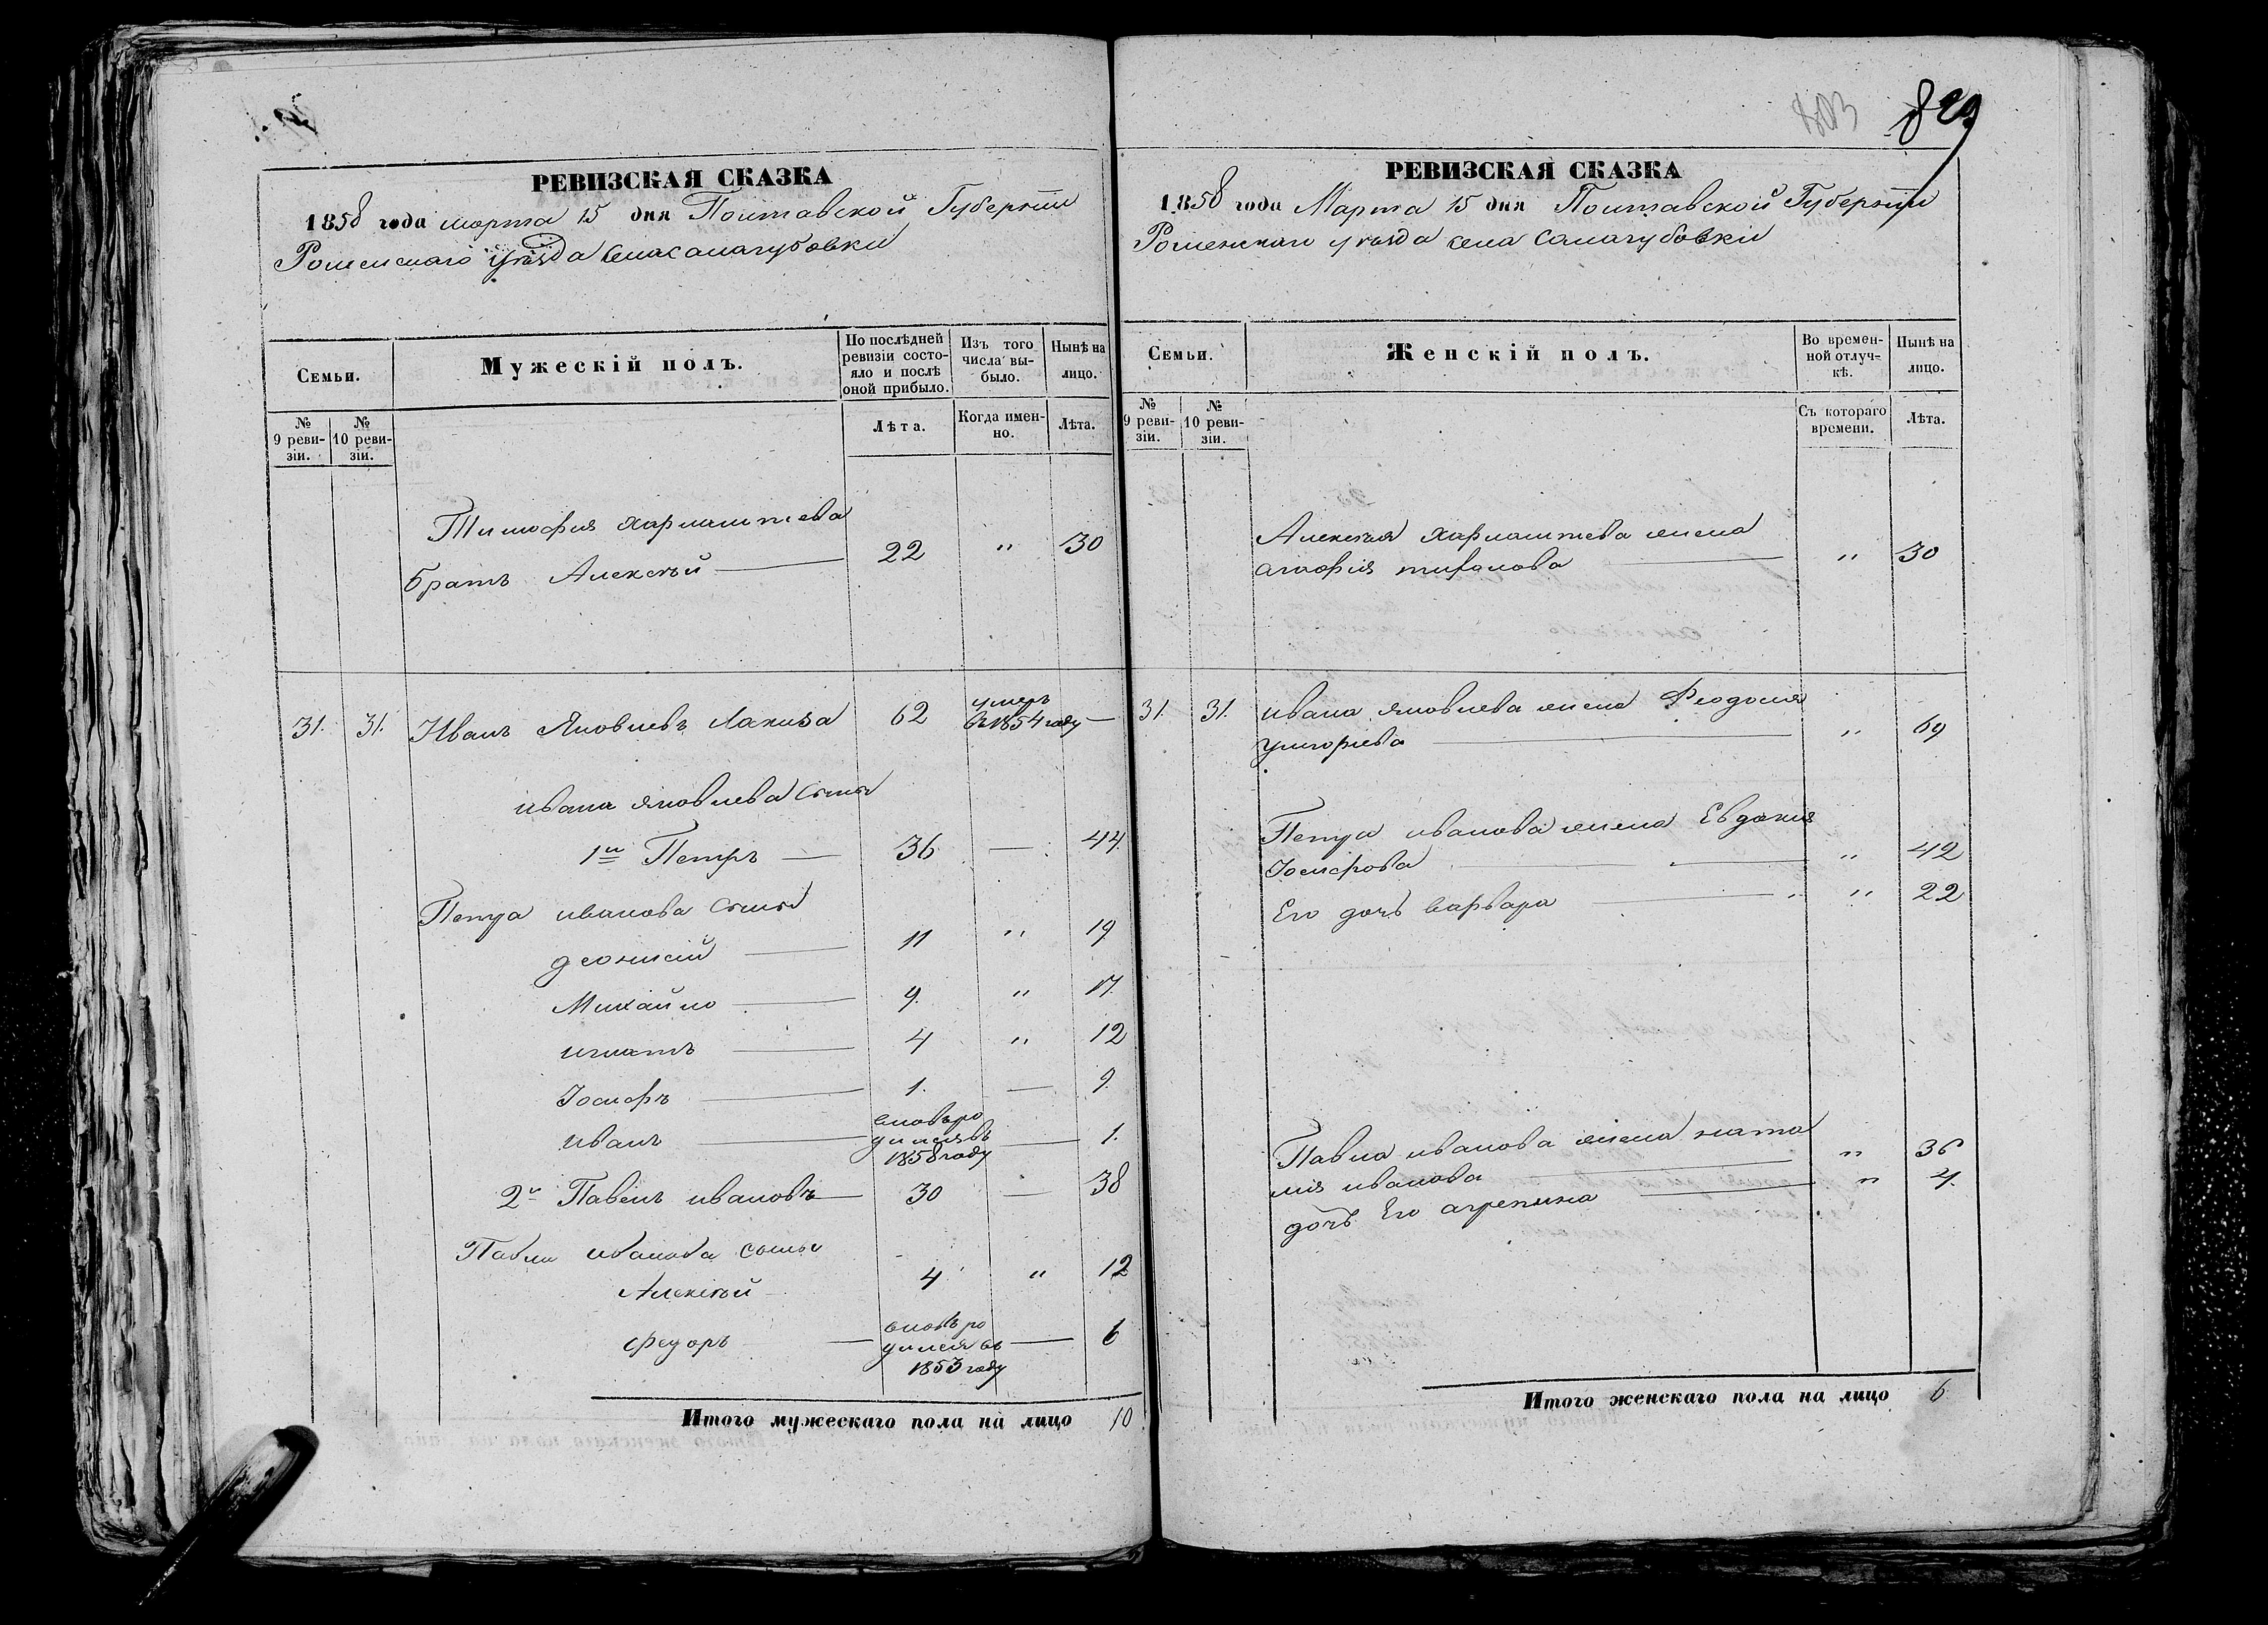 829
РЕВИЗСКАЯ СКАЗКА
1858 года марта 15 дня Полтавской Губерніи
Роменскаго уезда села Самагубовки
Семьи.
Мужескій полъ.
По послѣдней ревизіи состояло и послѣ оной прибыло.
Изъ того числа выбыло.
Нынѣ на лицо.
№ 9 ревизіи.
№ 10 ревизіи.
Лѣта.
Когда именно.
Лѣта.
Тимофея Харлампіева
братъ Алексѣй — 22 " 30
31. 31. Иванъ Яковлевъ Лакиза 62 умеръ
въ 1854 году —
ивана яковлева сыны
1й Петръ — 36 — 44.
Петра иванова сыны
деонисій — 11 " 19
Михайло — 9. " 17.
игнатъ — 4 " 12
Іосифъ — 1. — 9.
иванъ — вновь ро
дился въ
1858 году — 1.
2й Павелъ ивановъ — 30 — 38
Павла иванова сыны
Алексѣй 4 " 12
федоръ — вновь ро
дился въ
1853 году — 6
Итого мужескаго пола на лицо 10
РЕВИЗСКАЯ СКАЗКА
1858 года Марта 15 дня Полтавской Губерніи
Роменскаго уезда села Самагубовки
Семьи.
Женскій полъ.
Во временной отлучкѣ.
Нынѣ на лицо.
№ 9 ревизіи.
№ 10 ревизіи.
Съ котораго времени.
Лѣта.
Алексѣя Харлампіева жена
агафія — " 30
31. 31. ивана яковлева жена Феодосія
григорьева — " 69
Петра иванова жена Евдокія
Іосифова — " 42
Его дочь варвара — " 22
Павла иванова жена ната
лія иванова — " 36
дочь Его агрепина — " 4.
Итого женскаго пола на лицо 6